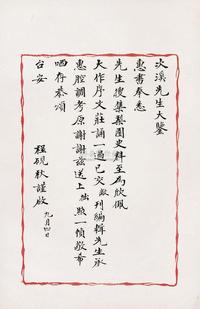 次溪先生大鑒
惠書奉悉
先生搜集梨園史料至為欣佩
大作序文莊誦一過已交敝刊編輯先生承
惠腔調考原謝謝茲送上拙照一幀敬希
哂存恭頌
台安
程硯秋謹啟
九月四日